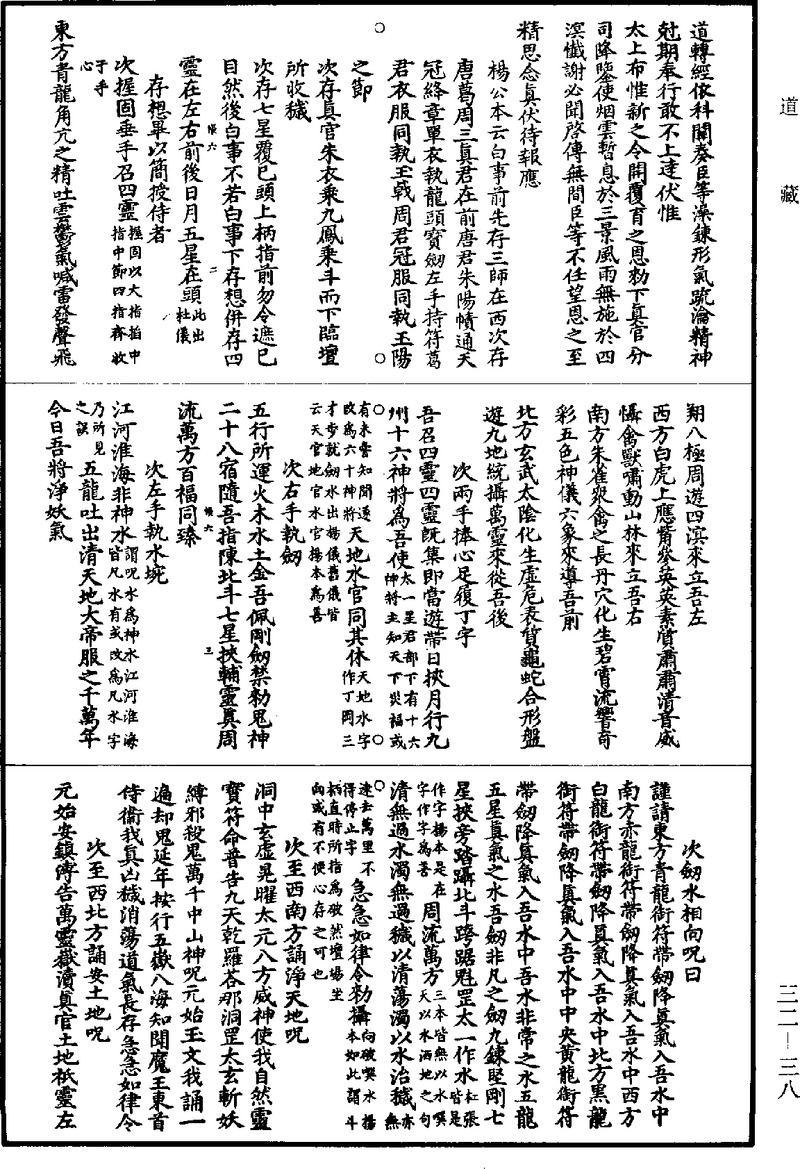 道藏
三二—三八
道轉經依科關奏臣等澡鍊形氣疏瀹精神
尅期奉行敢不上達伏惟
太上布惟新之令開覆育之恩勑下真官分
司降鑒使烟雲暫息於三景風雨無施於四
溟懺謝必聞啓傳無間臣等不任望恩之至
精思念真伏待報應
楊公本云白事前先存三師在西次存
唐葛周三真君在前唐君朱陽幘通天
冠絳章單衣執龍頭寶劒左手持符葛
君衣服同執玉戟周君冠服同執玉陽
之節
次存真官朱衣乘九鳳乘斗而下臨壇
所收穢
次存七星覆已頭上柄指前勿令遮已
目然後白事不若白事下存想併存四
靈在左右前後日月五星在頭此出杜儀
帳六
二
存想畢以簡授侍者
次握固垂手召四靈握固以大指掐中指中節四指齊收於手心
東方青龍角亢之精吐雲鬱氣喊雷發聲飛
翔八極周遊四溟來立吾左
西方白虎上應觜參英英素質肅肅清音威
懾禽獸嘯動山林來立吾右
南方朱雀衆禽之長丹穴化生碧霄流響奇
彩五色神儀六象來導吾前
北方玄武太陰化生虛危表質龜蛇合形盤
遊九地統攝萬靈來從吾後
次兩手捧心足履丁字
吾召四靈四靈旣集即當遊帶日挾月行九
州十六神將爲吾使太一星君部下有十六神將主知天下災福或有未嘗知聞遂改爲六十神將天地水官同其休天地水字作丁岡三才步就劒水出楊儀舊儀皆云天官地官水官楊本爲善
次右手執劒
五行所運火木水土金吾佩剛劒禁勑鬼神
二十八宿隨吾指陳北斗七星挾輔靈真周
帳六
三
流萬方百福同臻
次左手執水埦
江河淮海非神水謂呪水爲神水江河淮海皆凡水有或改爲凡水字乃所見之誤五龍吐出清天地大帝服之千萬年
今日吾將淨妖氣
次劒水相向呪曰
謹請東方青龍銜符帶劒降真氣入吾水中
南方赤龍銜符帶劒降真氣入吾水中西方
白龍銜符帶劒降真氣入吾水中北方黑龍
銜符帶劒降真氣入吾水中中央黃龍銜符
帶劒降真氣入吾水中吾水非常之水五龍
五星真氣之水吾劒非凡之劒九鍊堅剛七
星挾旁踏躡北斗跨踞魁罡太一作水杜張皆是作字楊本是在字作字爲善周流萬方三本皆無以水噀天以水洒地之句
清無過水濁無過穢以清蕩濁以水治穢亦無速去萬里不得停止字急急如律令勑攝向破噀水楊本如此謂斗柄直時所指爲破然壇場坐向或有不便心存之可也
次至西南方誦淨天地呪
洞中玄虛晃曜太元八方威神使我自然靈
寶符命普告九天乾羅荅那洞罡太玄斬妖
縛邪殺鬼萬千中山神呪元始玉文我誦一
遍却鬼延年按行五嶽八海知聞魔王束首
侍衞我真凶穢消蕩道氣長存急急如律令
次至西北方誦安土地呪
元始安鎮傳告萬靈嶽瀆真官土地祇靈左